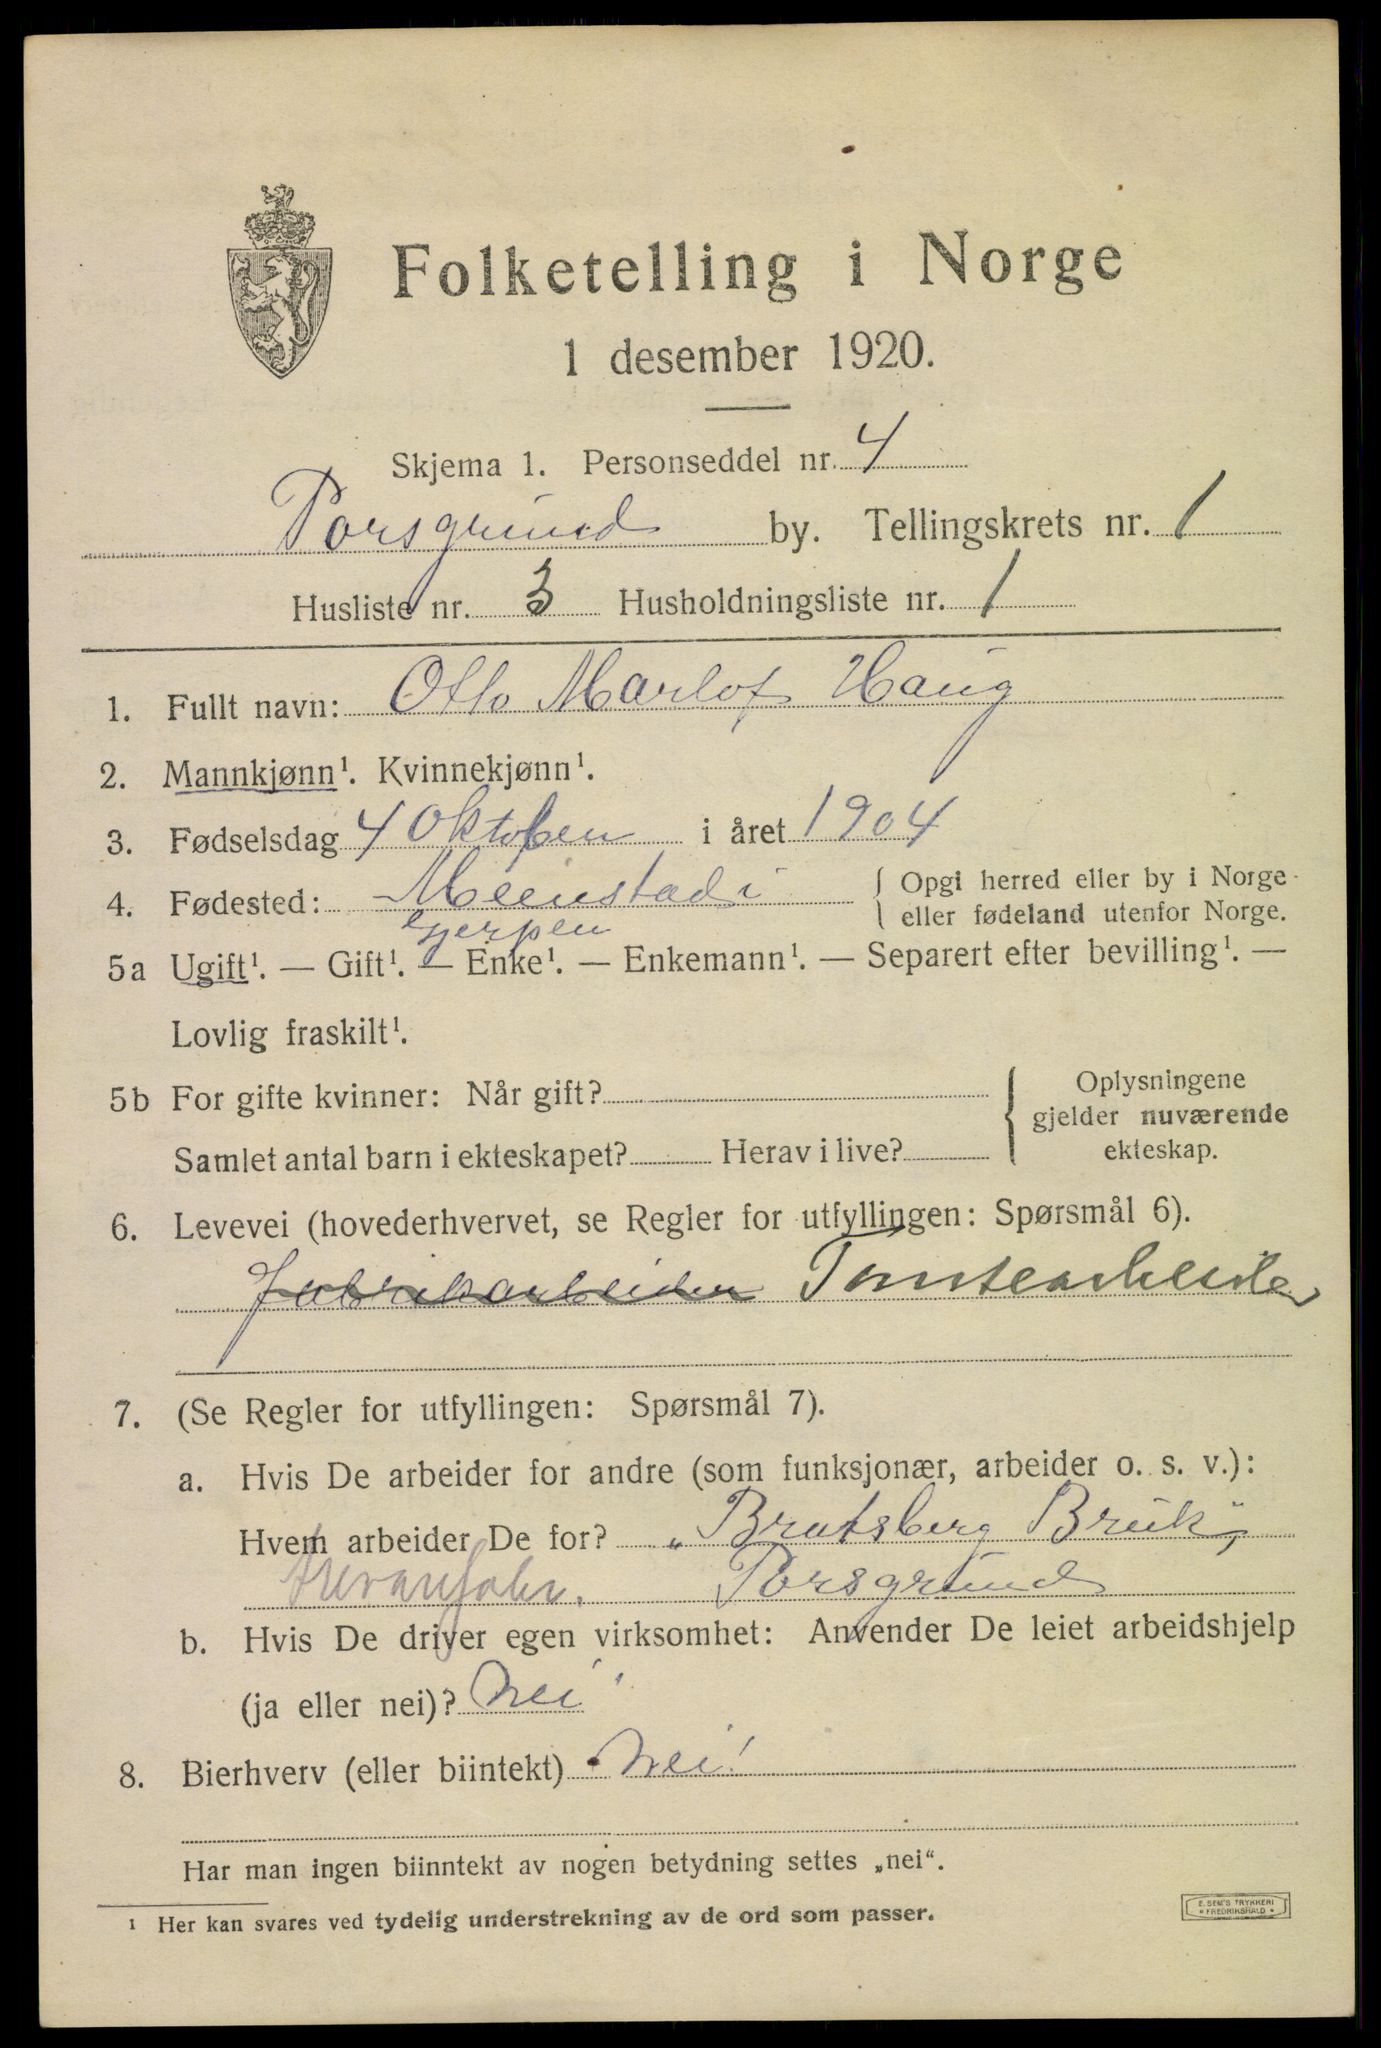 Folketelling i Norge
1 desember 1920.
Skjema 1. Personseddel nr. 4
Porsgrund by. Tellingskrets nr. 1
Husliste nr. 3 Husholdningsliste nr. 1
1. Fullt navn: Otto Marlof Haug
2. Mannkjønn¹. Kvinnekjønn¹.
3. Fødselsdag 4 Oktober i året 1904
4. Fødested: Meenstad i
Gjerpen
{ Opgi herred eller by i Norge
eller fødeland utenfor Norge.
5a Ugift¹. — Gift¹. — Enke¹. — Enkemann¹. — Separert efter bevilling¹. —
Lovlig fraskilt¹.
5b For gifte kvinner: Når gift?
Samlet antal barn i ekteskapet? Herav i live?
{ Oplysningene
gjelder nuværende
ekteskap.
6. Levevei (hovederhvervet, se Regler for utfyllingen: Spørsmål 6).
Fabrikarbeider Tomtearbeider
7. (Se Regler for utfyllingen: Spørsmål 7).
a. Hvis De arbeider for andre (som funksjonær, arbeider o. s. v.):
Hvem arbeider De for? „Bratsberg Bruk",
Porsgrund
b. Hvis De driver egen virksomhet: Anvender De leiet arbeidshjelp
(ja eller nei)? Nei
8. Bierhverv (eller biintekt) Nei!
Har man ingen biinntekt av nogen betydning settes „nei“.
¹ Her kan svares ved tydelig understrekning av de ord som passer.
E. SEM'S TRYKKERI
FREDRIKSHALD